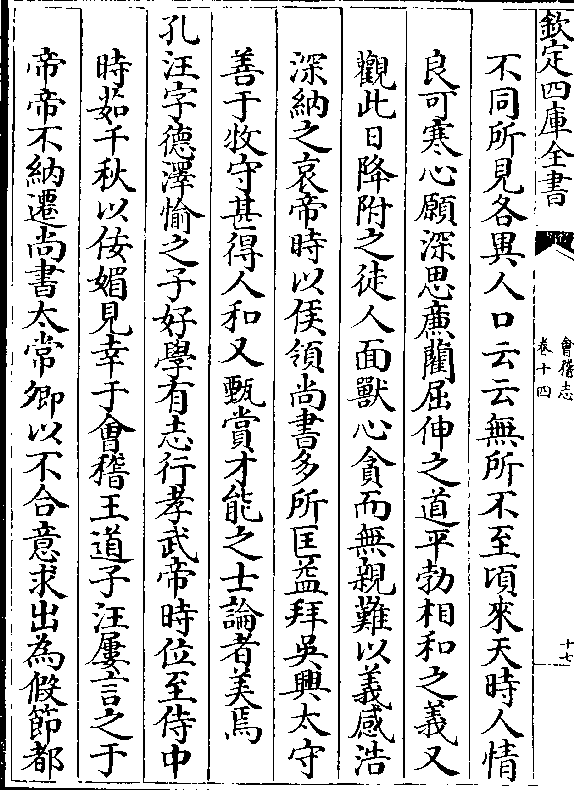 欽定四庫全書
會稽志
卷十四
十七
不同所見各異人口云云無所不至頃來天時人情
良可寒心願深思亷藺屈伸之道平勃相和之義又
觀此日降附之徒人面獸心貪而無親難以義感浩
深納之哀帝時以侯領尚書多所匡益拜吳興太守
善于牧守甚得人和又甄賞才能之士論者美焉
孔汪字德澤愉之子好學有志行孝武帝時位至侍中
時茹千秋以佞媚見幸于會稽王道子汪屢言之于
帝帝不納遷尚書太常卿以不合意求出為假節都